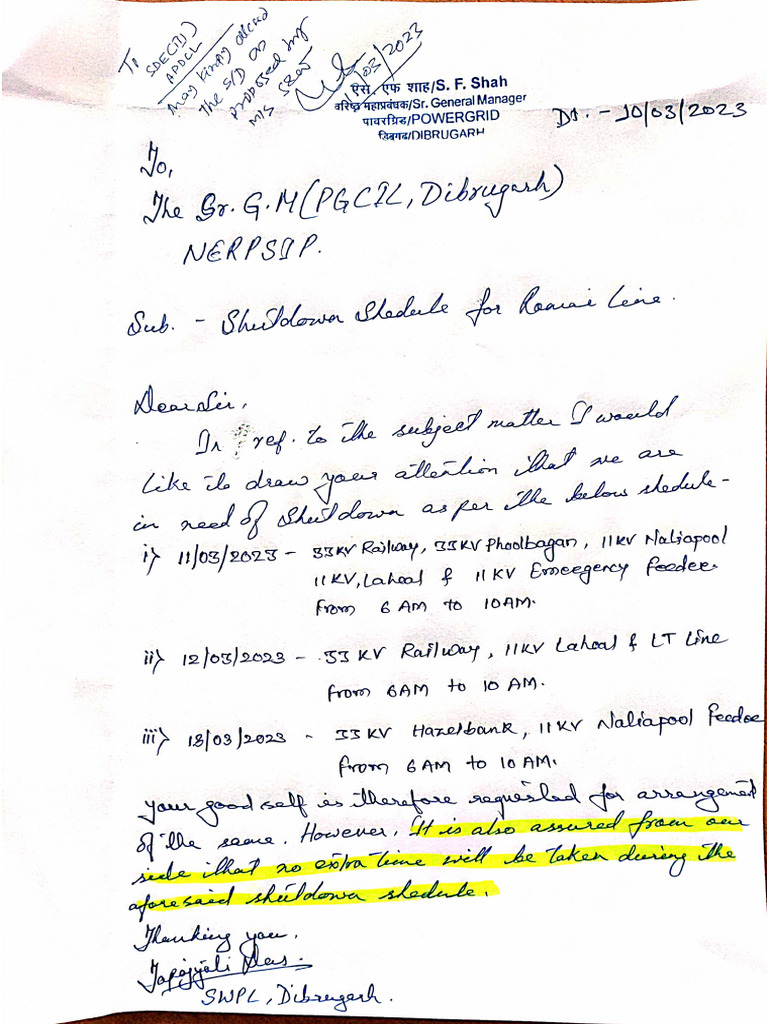 To
SDE(II)
APDCL
May kindly allowed
the S/D as
proposed by
M/s
/03/2023
ऐस. एफ शाह/S. F. Shah
वरिष्ठ महाप्रबंधक/Sr. General Manager
पावरग्रिड/POWERGRID
डिब्रूगढ/DIBRUGARH
Dt. - 10/03/2023
To,
The Sr. G.M (PGCIL, Dibrugarh)
NERPSIP.
Sub. - Shutdown Shedule for Romai Line.
Dear Sir,
In ref. to the subject matter I would
like to draw your attention that we are
in need of Shutdown as per the below shedule -
i) 11/03/2023 - 33KV Railway, 33KV Phoolbagan, 11KV Naliapool
11KV, Lahoal & 11KV Emergency Feeder
From 6 AM to 10AM.
ii) 12/03/2023 - 33 KV Railway, 11KV Lahoal & LT Line
From 6AM to 10 AM.
iii) 13/03/2023 - 33KV Hazelbank, 11KV Naliapool Feeder
From 6 AM to 10 AM.
Your good self is therefore requested for arrangement
of the same. However, It is also assured from our
side that no extra time will be taken during the
aforesaid shutdown shedule.
Thanking you.
Das.
SWPL, Dibrugarh.